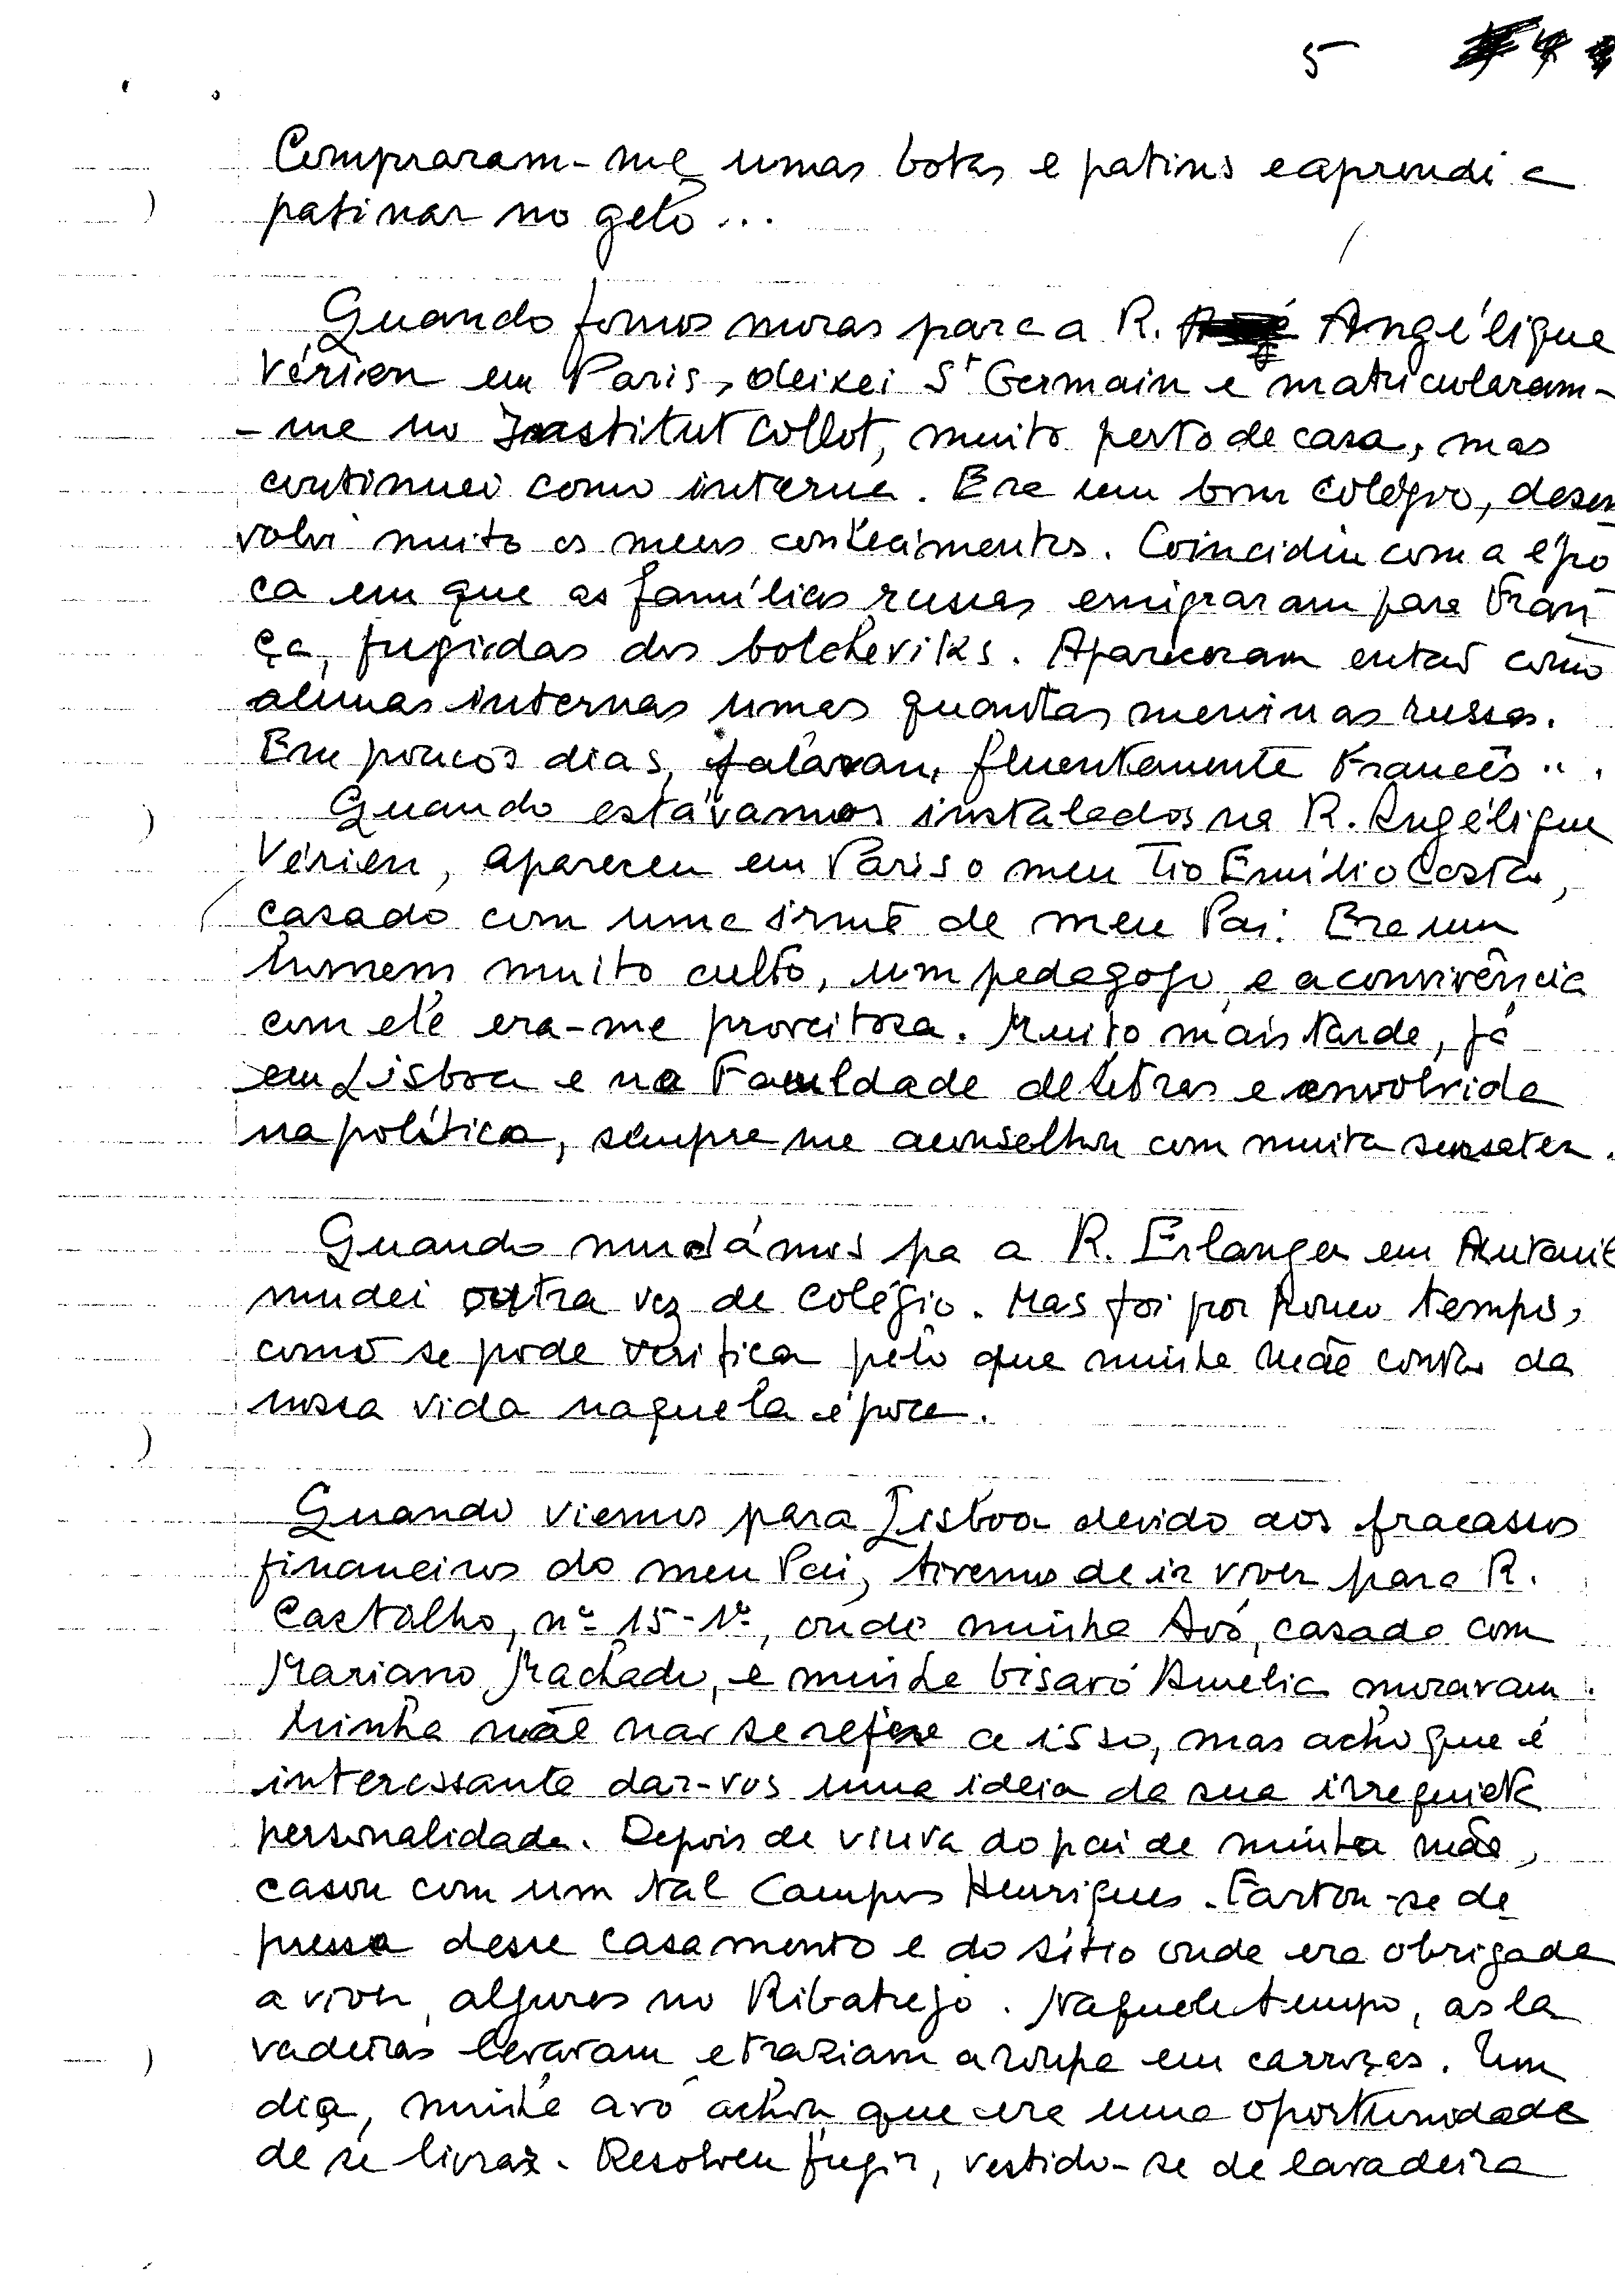 5
Compraram-me umas botas e patins e aprendi a
patinar no gelo...
Quando fomos morar para a R. Angélique
Vérien em Paris, deixei St Germain e matricularam-
-me no Institut Collot, muito perto de casa, mas
continuei como interna. Era um bom colégio, desen
volvi muito os meus conhecimentos. Coincidiu com a épo
ca em que as famílias russas emigraram para Fran
ça, fugidas dos bolcheviks. Apareceram então como
alunas internas umas quantas meninas russas.
Em poucos dias, falavam fluentemente Francês...
Quando estávamos instalados na R. Angélique
Vérien, apareceu em Paris o meu Tio Emílio Costa,
casado com uma irmã de meu Pai. Era um
homem muito culto, um pedagogo, e a convivência
com ele era-me proveitosa. Muito mais tarde, já
em Lisboa e na Faculdade de Letras e envolvida
na política, sempre me aconselhou com muita sensatez.
Quando mudámos pa a R. Erlanger em Auteuil
mudei outra vez de colégio. Mas foi por pouco tempo,
como se pode verificar pelo que minha Mãe conta da
nossa vida naquela época.
Quando viemos para Lisboa devido aos fracassos
financeiros do meu Pai, tivemos de ir viver para R.
Castilho, nº 15-1º, onde minha Avó, casada com
Mariano Machado, e minha bisavó Amélia moravam.
Minha mãe não se refere a isso, mas acho que é
interessante dar-vos uma ideia da sua irrequieta
personalidade. Depois de viúva do pai de minha mãe,
casou com um tal Campos Henriques. Fartou-se de
pressa desse casamento e do sítio onde era obrigada
a viver, algures no Ribatejo. Naquele tempo, as la
vadeiras levavam e traziam a roupa em carroças. Um
dia, minha avó achou que era uma oportunidade
de se livrar. Resolveu fugir, vestido-se de lavadeira